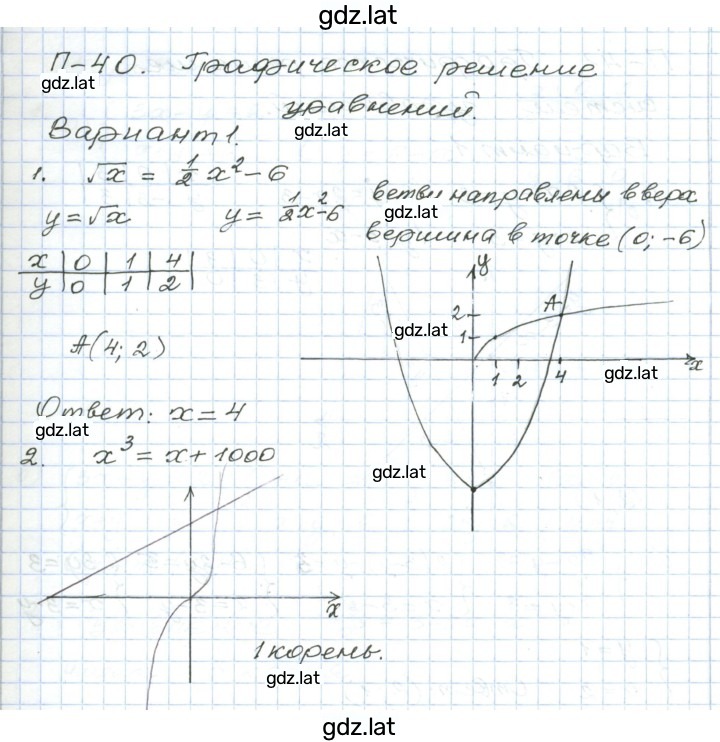 gdz.lat
П-40. Графическое решение
gdz.lat
уравнений.
Вариант 1.
gdz.lat
1. √x = 1/2 x² - 6
ветви направлены вверх
y = √x
y = 1/2 x² - 6
gdz.lat
вершина в точке (0; -6)
x | 0 | 1 | 4 |
y | 0 | 1 | 2 |
y
2
A
1
gdz.lat
A(4; 2)
1 2 4
gdz.lat
x
Ответ: x = 4
gdz.lat
2. x³ = x + 1000
gdz.lat
x
1 корень.
gdz.lat
gdz.lat